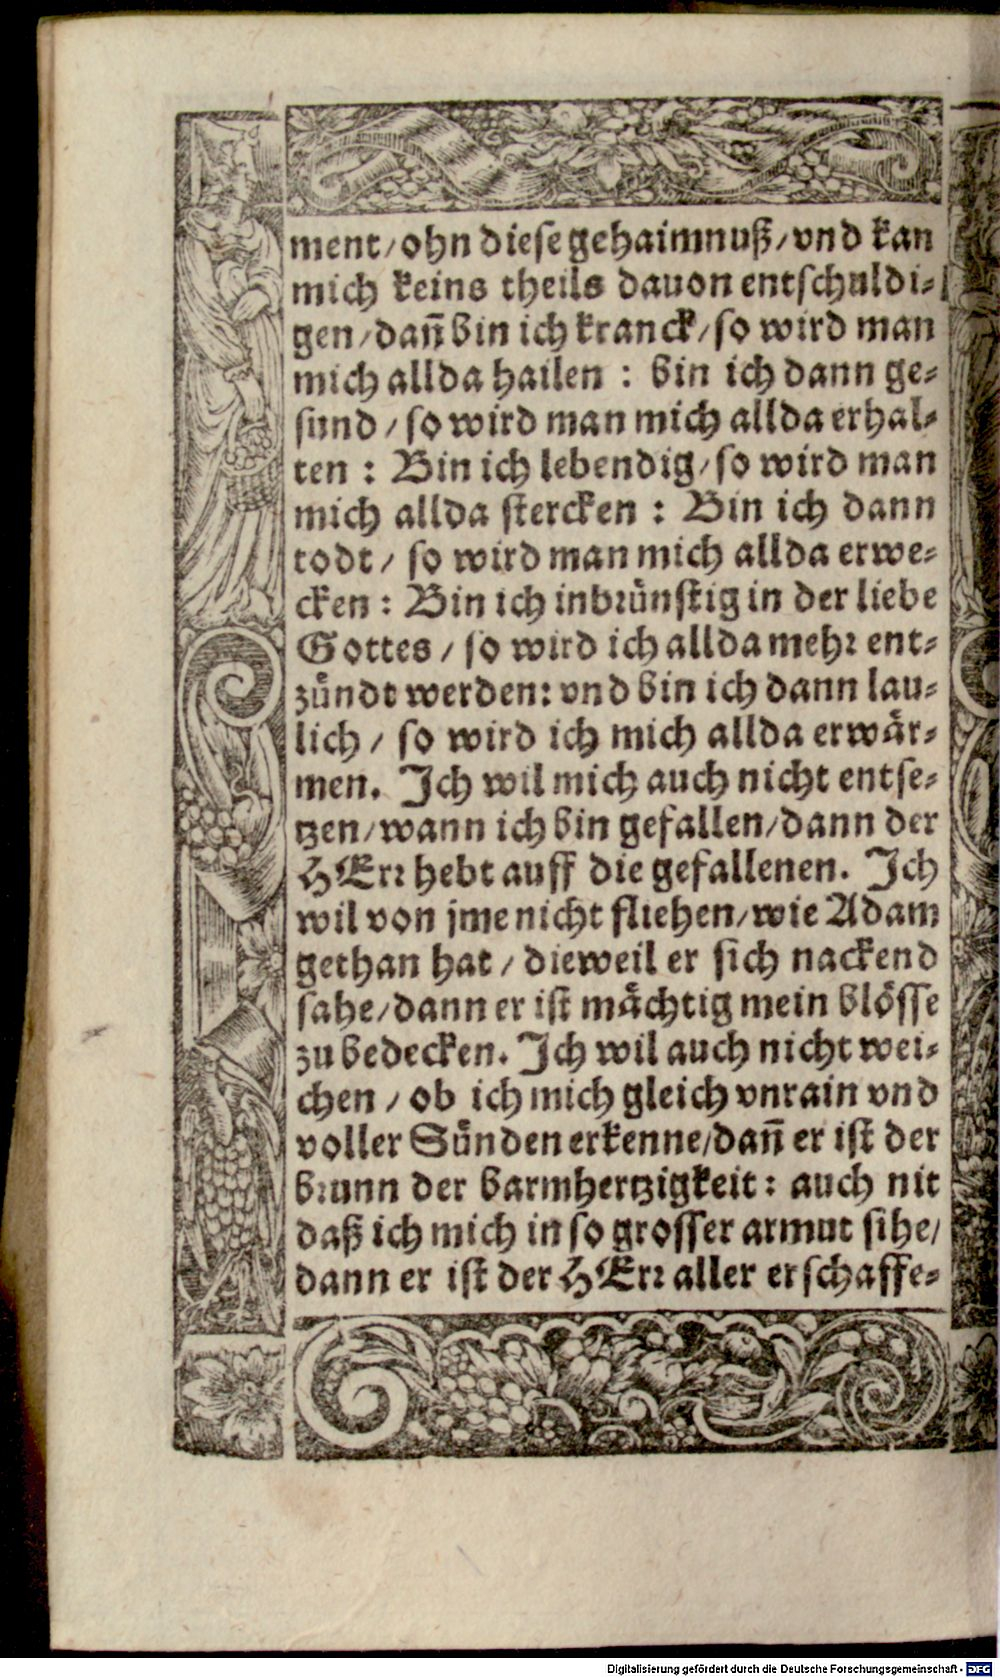 ment/ohn diese gehaimnuß/vnd kan
mich keins theils dauon entschuldi⸗
gen/dañ bin ich kranck/so wird man
mich allda hailen : bin ich dann ge⸗
sund/so wird man mich allda erhal⸗
ten : Bin ich lebendig/so wird man
mich allda stercken : Bin ich dann
todt/ so wird man mich allda erwe⸗
cken : Bin ich inbrůnstig in der liebe
Gottes/ so wird ich allda mehr ent⸗
zůndt werden: vnd bin ich dann lau⸗
lich/ so wird ich mich allda erwaͤr⸗
men. Ich wil mich auch nicht entse⸗
tzen/wann ich bin gefallen/dann der
HErr hebt auff die gefallenen. Ich
wil von jme nicht fliehen/wie Adam
gethan hat/ dieweil er sich nackend
sahe/dann er ist maͤchtig mein bloͤsse
zu bedecken. Ich wil auch nicht wei⸗
chen/ ob ich mich gleich vnrain vnd
voller Suͤnden erkenne/dañ er ist der
brunn der barmhertzigkeit: auch nit
daß ich mich in so grosser armut sihe/
dann er ist der HErr aller erschaffe⸗
Digitalisierung gefördert durch die Deutsche Forschungsgemeinschaft - DFG